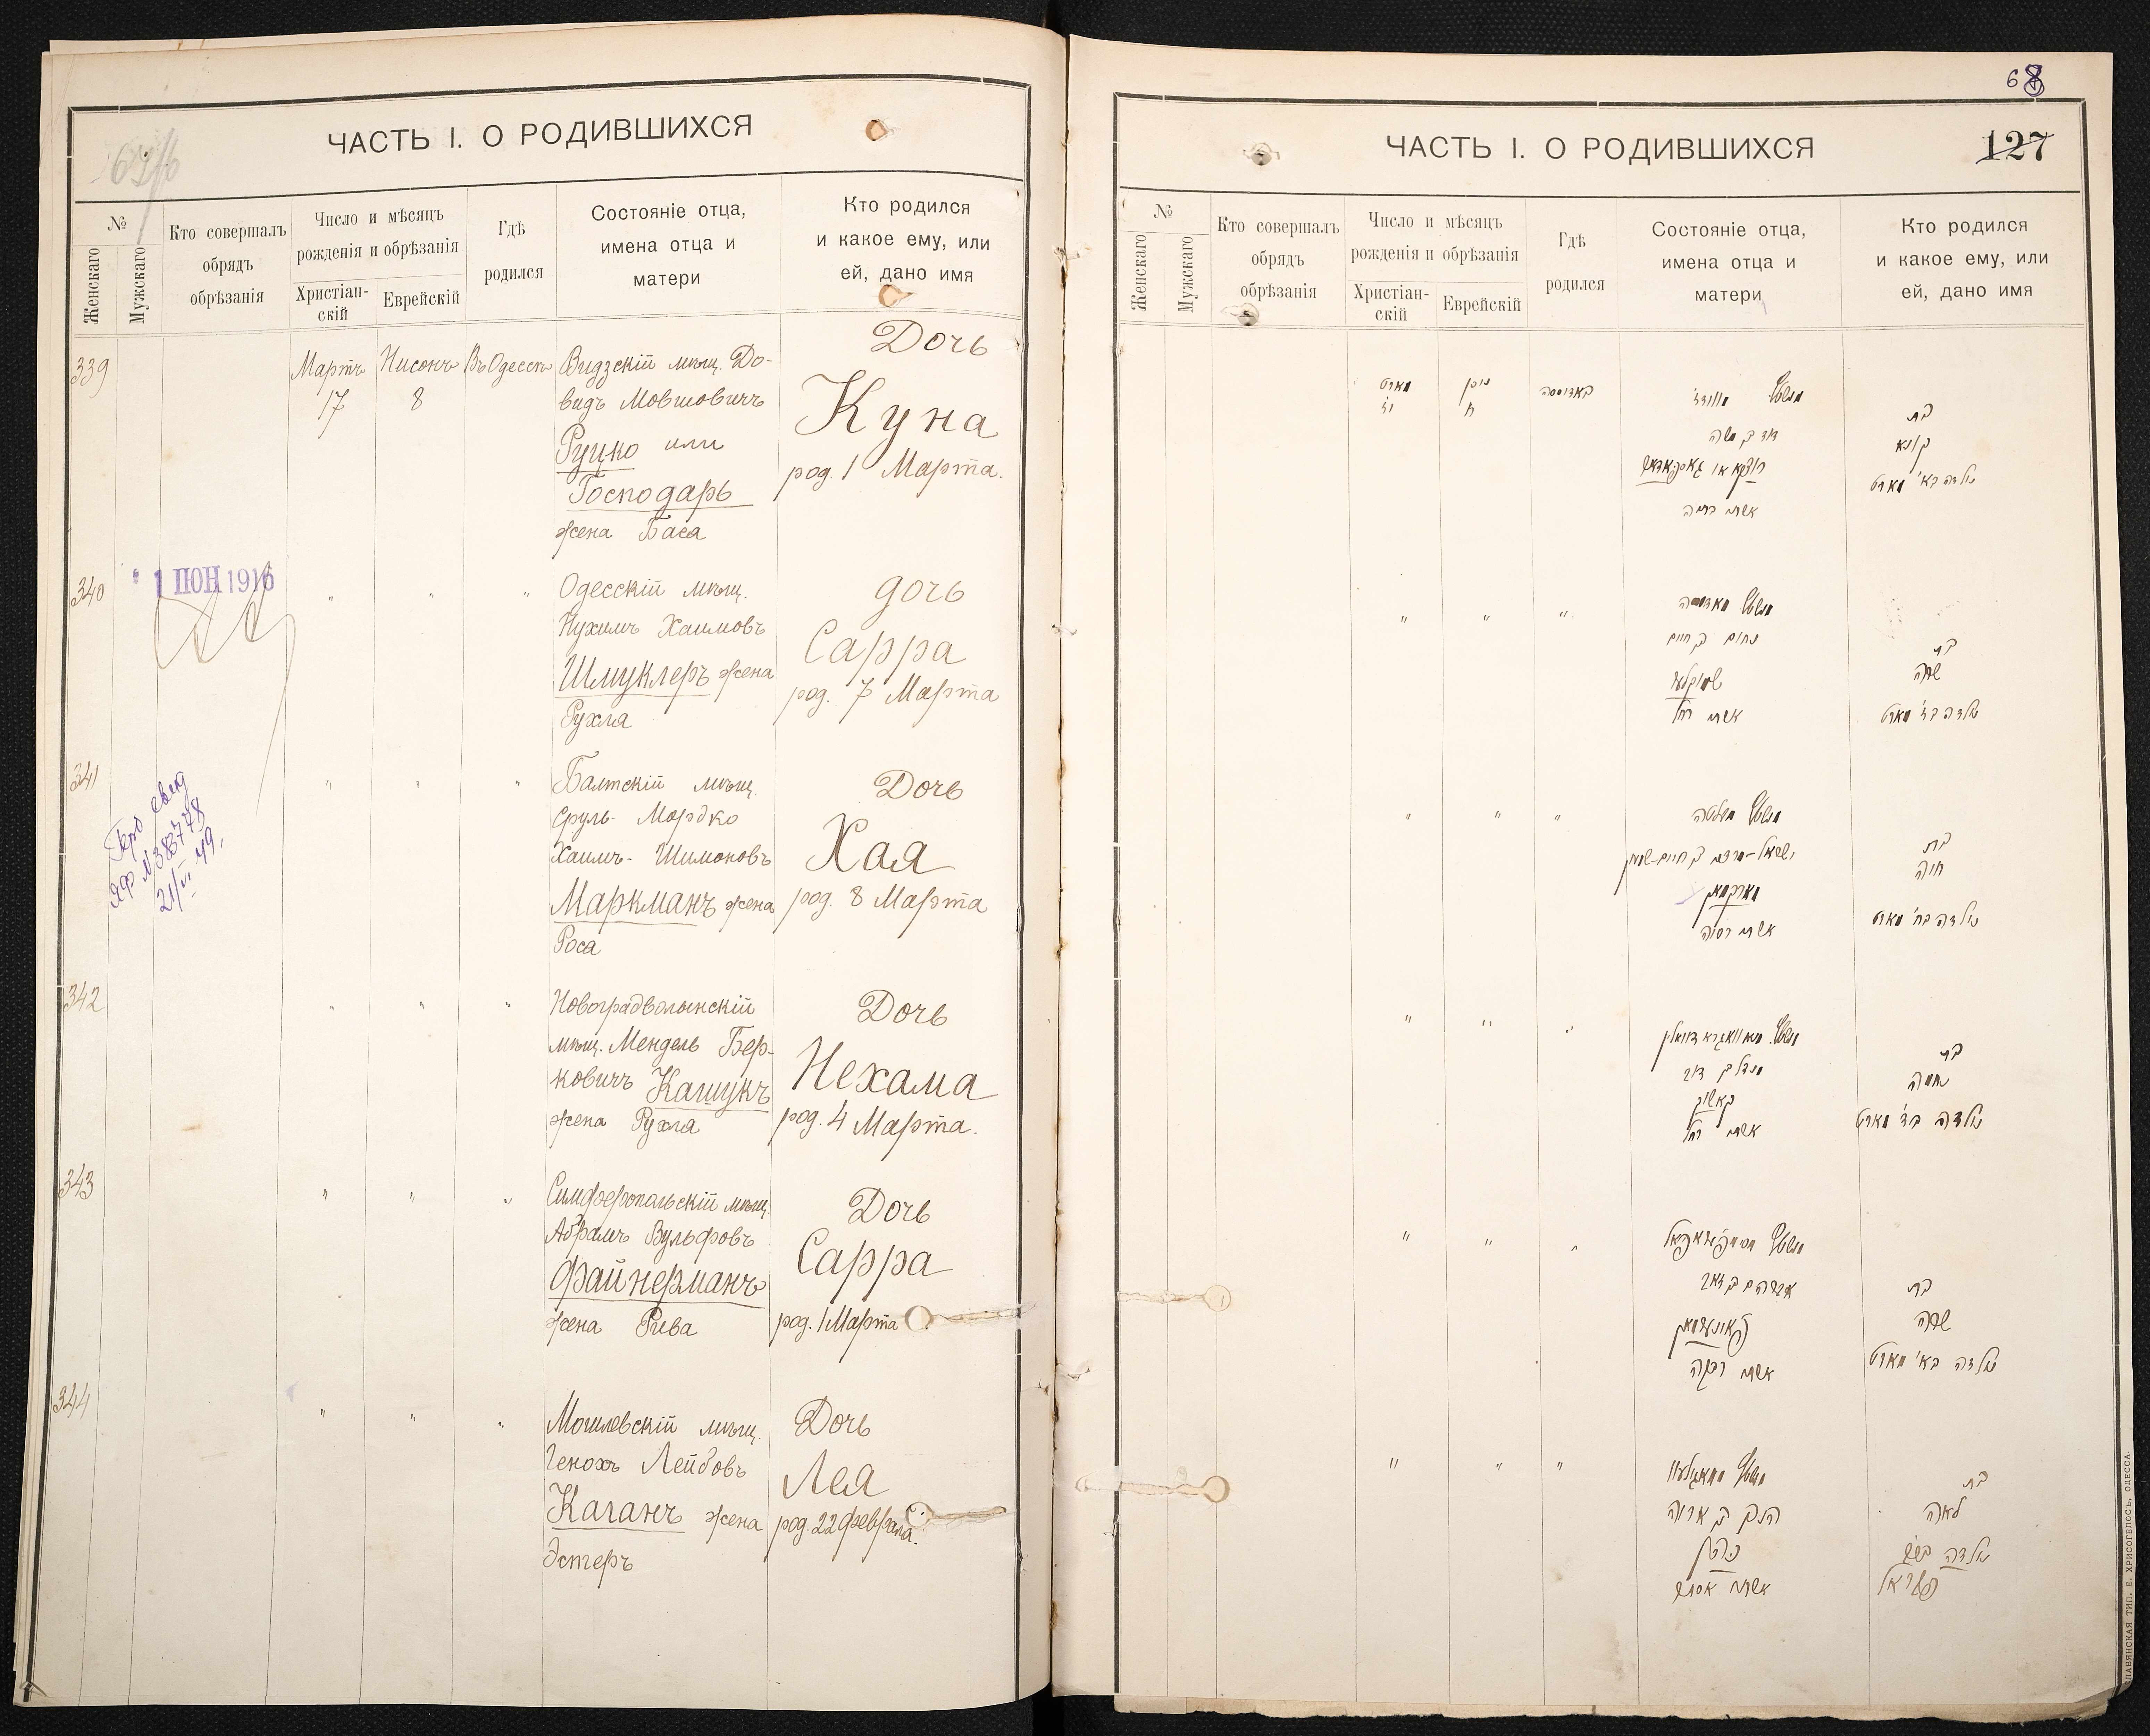 ЧАСТЬ I. О РОДИВШИХСЯ
№
Женскаго
Мужскаго
Кто совершалъ
обрядъ
обрѣзанія
Число и мѣсяцъ
рожденія и обрѣзанія
Христіан-
скій
Еврейскій
Гдѣ
родился
Состояніе отца,
имена отца и
матери
Кто родился
и какое ему, или
ей, дано имя
339
Мартъ
17
Нисонъ
8
Въ Одессѣ
Видзскій мѣщ. До-
видъ Мовшовичъ
Руцко или
Господарь
жена Баса
Дочь
Куна
род. 1 Марта.
340
1 ІЮН 1916
" " "
Одесскій мѣщ.
Нухимъ Хаимовъ
Шмуклеръ жена
Рухля
дочь
Сарра
род. 7 Марта
341
21/VI 49.
" " "
Балтскій мѣщ.
Сруль-Мордко
Хаимъ-Шимоновъ
Маркманъ жена
Роса
Дочь
Хая
род. 8 Марта
342
" " "
Новоградволынскій
мѣщ. Мендель Бер-
ковичъ Кашукъ
жена Рухля
Дочь
Нехама
род. 4 Марта.
343
" " "
Симферопольскій мѣщ.
Абрамъ Вульфовъ
Файнерманъ
жена Рива
Дочь
Сарра
род. 1 Марта
344
" " "
Могилевскій мѣщ.
Генохъ Лейбовъ
Каганъ жена
Эстеръ
Дочь
Лея
род. 22 февраля.
68
127
ЧАСТЬ I. О РОДИВШИХСЯ
№
Женскаго
Мужскаго
Кто совершалъ
обрядъ
обрѣзанія
Число и мѣсяцъ
рожденія и обрѣзанія
Христіан-
скій
Еврейскій
Гдѣ
родился
Состояніе отца,
имена отца и
матери
Кто родился
и какое ему, или
ей, дано имя
מארט
ניסן
ח
באדוססה
דוד בן משה
בת
קונא
נולדה בא' מארט
" " "
נחום בן חיים
אשתו רחל
בת
שרה
נולדה בז' מארט
" " "
ישראל-מרדכי בן חיים-שמעון
מארקמאן
אשתו רסיה
בת
חיה
נולדה בח' מארט
" " "
מענדל בן דוב
קאשוק
אשתו רחל
בת
נחמה
נולדה בד' מארט
" " "
אברהם בן זאב
פאינערמאן
אשתו רבקה
בת
שרה
נולדה בא' מארט
" " "
הנוך בן אריה
כהן
אשתו אסתר
בת
לאה
נולדה